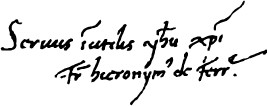 Seruus iutilis yhu xpi
fr̄ hieronym⁹ de ferr.ᵃ